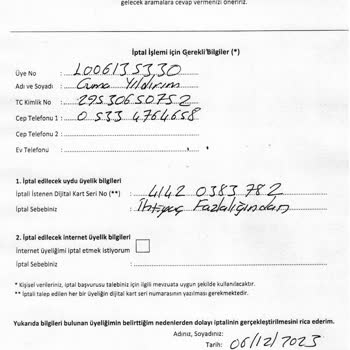 gelecek aramalara cevap vermenizi öneririz.
İptal İşlemi için Gerekli Bilgiler (*)
Üye No : L0061353,30
Adı ve Soyadı : Cuma Yıldırım
TC Kimlik No : 29530650752
Cep Telefonu 1 : 0 533 4764658
Cep Telefonu 2 :
Ev Telefonu :
1. İptal edilecek uydu üyelik bilgileri
İptali İstenen Dijital Kart Seri No (**) : 4142 0383 782
İptal Sebebiniz : İhtiyaç Fazlalığından
2. İptal edilecek internet üyelik bilgileri
İnternet üyeliğimi iptal etmek istiyorum
İptal Sebebiniz :
* Kişisel verileriniz, iptal başvurusu talebiniz için ilgili mevzuata uygun şekilde kullanılacaktır.
** İptali talep edilen her bir üyeliğin dijital kart seri numarasının yazılması gerekmektedir.
Yukarıda bilgileri bulunan üyeliğimin belirttiğim nedenlerden dolayı iptalinin gerçekleştirilmesini rica ederim.
Adınız, Soyadınız:
Tarih: 06/12/2023